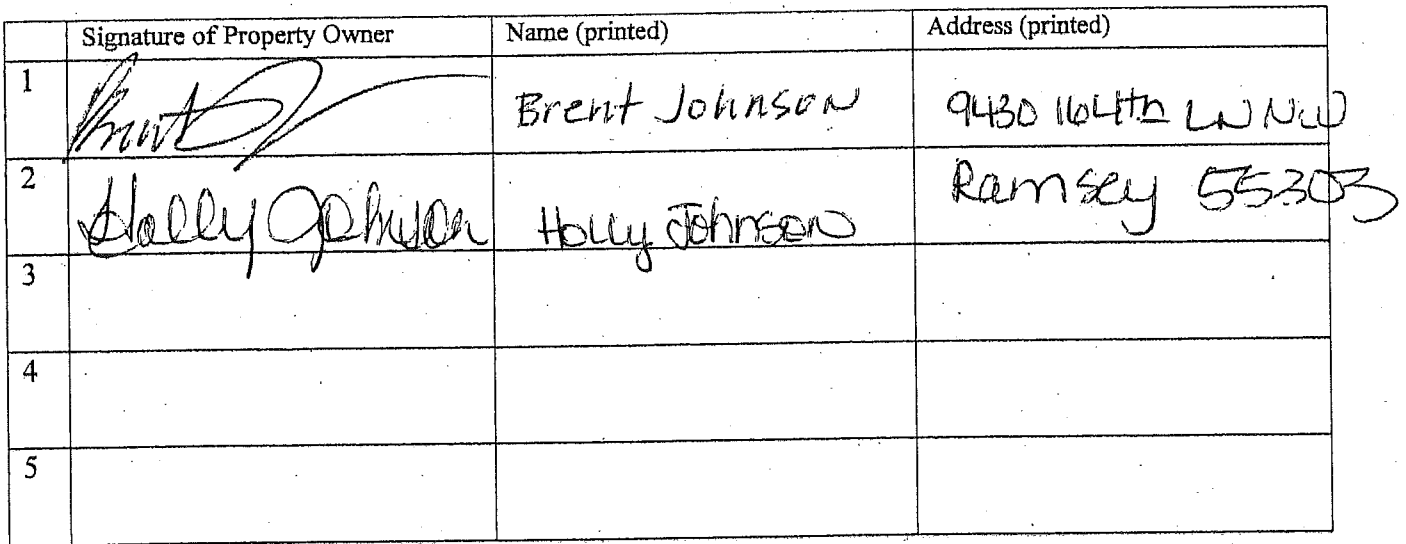 Signature of Property Owner Name (printed) Address (printed)
1 Brent Johnson 9430 164th LN NW
2 Holly Johnson Holly Johnson Ramsey 55303
3
4
5